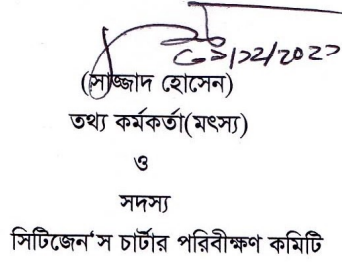 (সাজ্জাদ হোসেন)
তথ্য কর্মকর্তা(মৎস্য)
ও
সদস্য
সিটিজেন‘স চার্টার পরিবীক্ষণ কমিটি